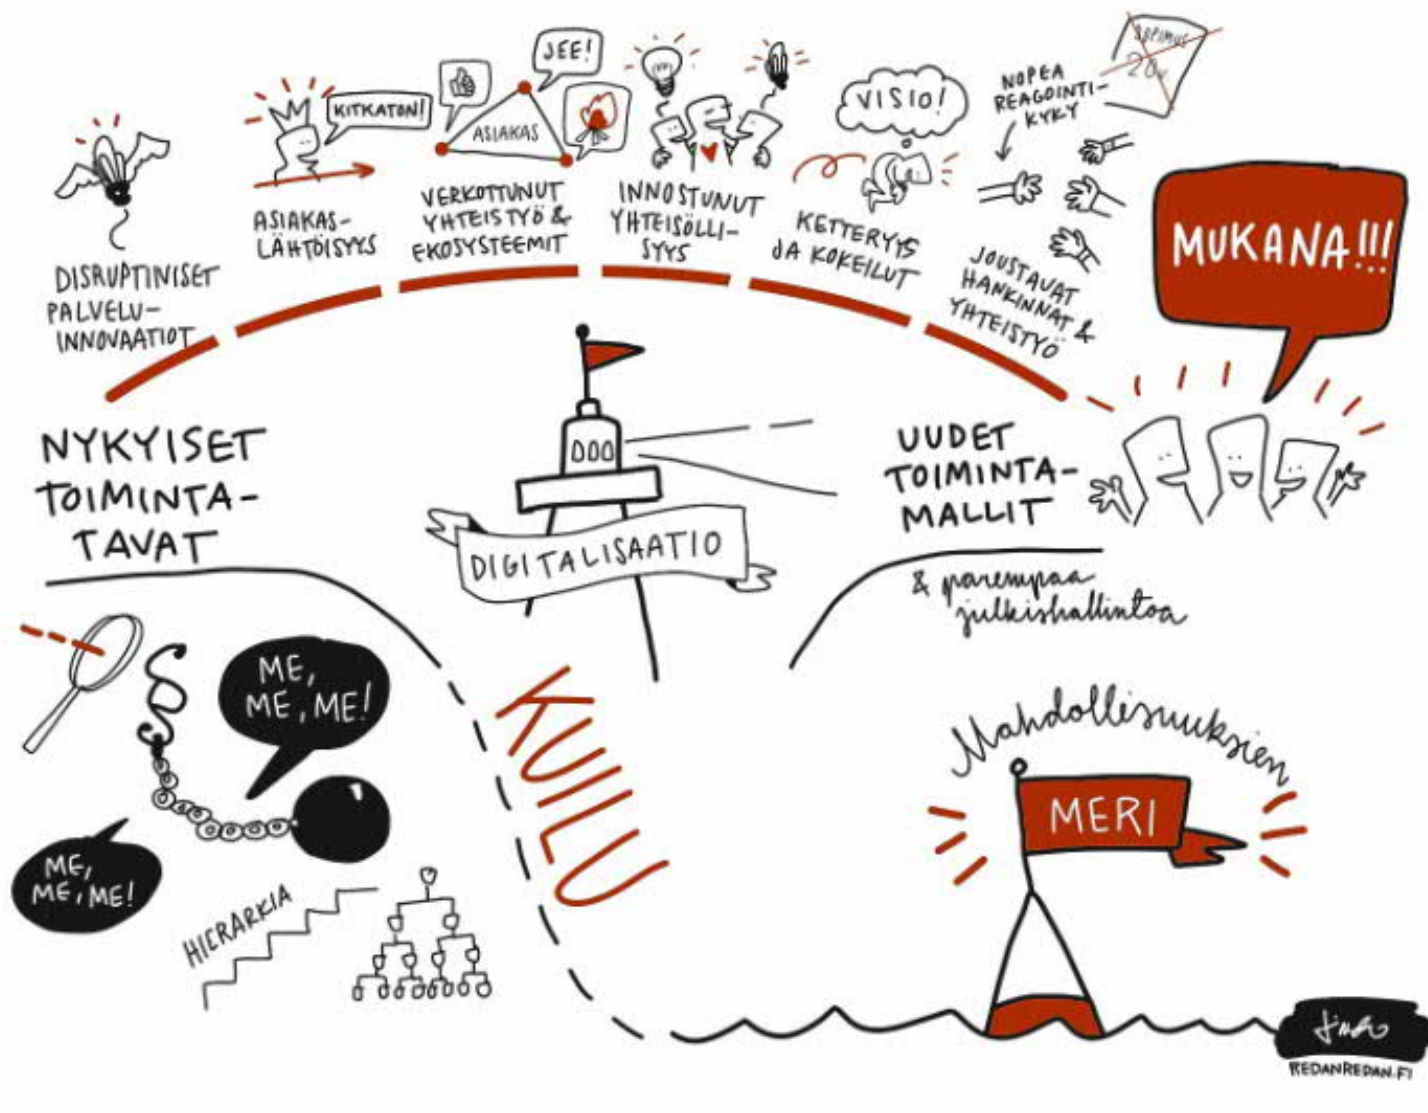 DISRUPTIIVISET
PALVELU-
INNOVAATIOT
KITKATON!
ASIAKAS-
LÄHTÖISYYS
JEE!
ASIAKAS
VERKOTTUNUT
YHTEISTYÖ &
EKOSYSTEEMIT
INNOSTUNUT
YHTEISÖLLI-
SYYS
VISIO!
KETTERYYS
JA KOKEILUT
NOPEA
REAGOINTI-
KYKY
SOPIMUS
JOUSTAVAT
HANKINNAT &
YHTEISTYÖ
MUKANA!!!
NYKYISET
TOIMINTA-
TAVAT
DIGITALISAATIO
UUDET
TOIMINTA-
MALLIT
& parempaa
julkishallintoa
ME,
ME, ME!
ME,
ME, ME!
HIERARKIA
KUILU
Mahdollisuuksien
MERI
REDANREDAN.FI